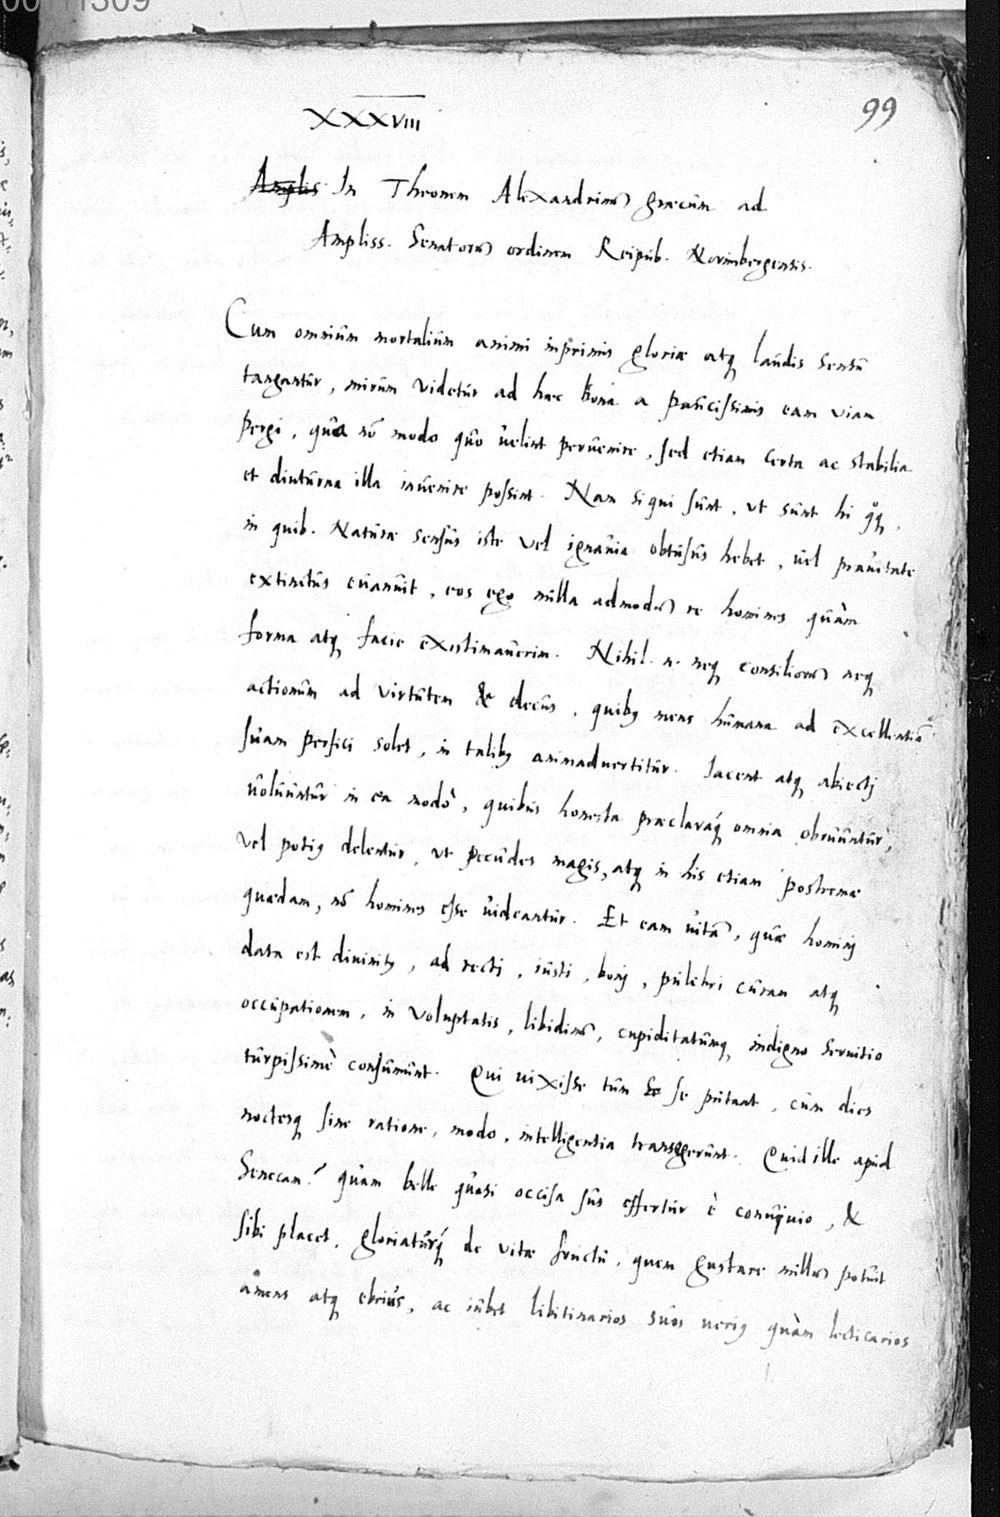 XXXVIII
99
Ampliss In Theonem Alexandrinũ græcum ad
Ampliss. Senatorũ ordinem Reipub. Norimbergensis.
Cum omnium mortalium animi inprimis gloriæ atq laudis sensu
tangantur, mirum videtur ad hæc bona a paucissimis eam viam
pergi, qua nõ modo quo velint peruenire, sed etiam certa ac stabilia
et diuturna illa inuenire possint. Nam si qui sunt, ut sunt hi qq,
in quib. Naturæ sensus iste vel ignauia obtusus hebet, vel prauitate
extinctus euanuit, eos ego nulla admodũ re homines quàm
forma atq facie existimauerim. Nihil .n. neq consiliorũ neq
actionum ad virtutem & decus, quibg mens humana ad excellentiã
suam perfici solet, in talibg animaduertitur. Iacent atq abiecti
uoluuntur in ea modò, quibus honesta præclaraq omnia obruuntur,
vel potig delentur, ut pecudes magis, atq in his etiam postremæ
quædam, nõ homines esse uideantur. Et eam uitã, quæ homini
data est diuinitg, ad recti, iusti, boni, pulchri curam atq
occupationem, in voluptatis, libidinũ, cupiditatumq indigno seruitio
turpissimè consumunt. Qui uixisse tum se se putant, cum dies
noctesq sine ratione, modo, intelligentia transegerunt. Quid ille apud
Senecam? quam belle quasi occisa sus effertur è conuiuio, &
sibi placet, gloriaturq de vitæ fructu, quem gustare nullũ potuit
amens atq ebrius, ac iubet libitinarios suos uerig quàm lecticarios